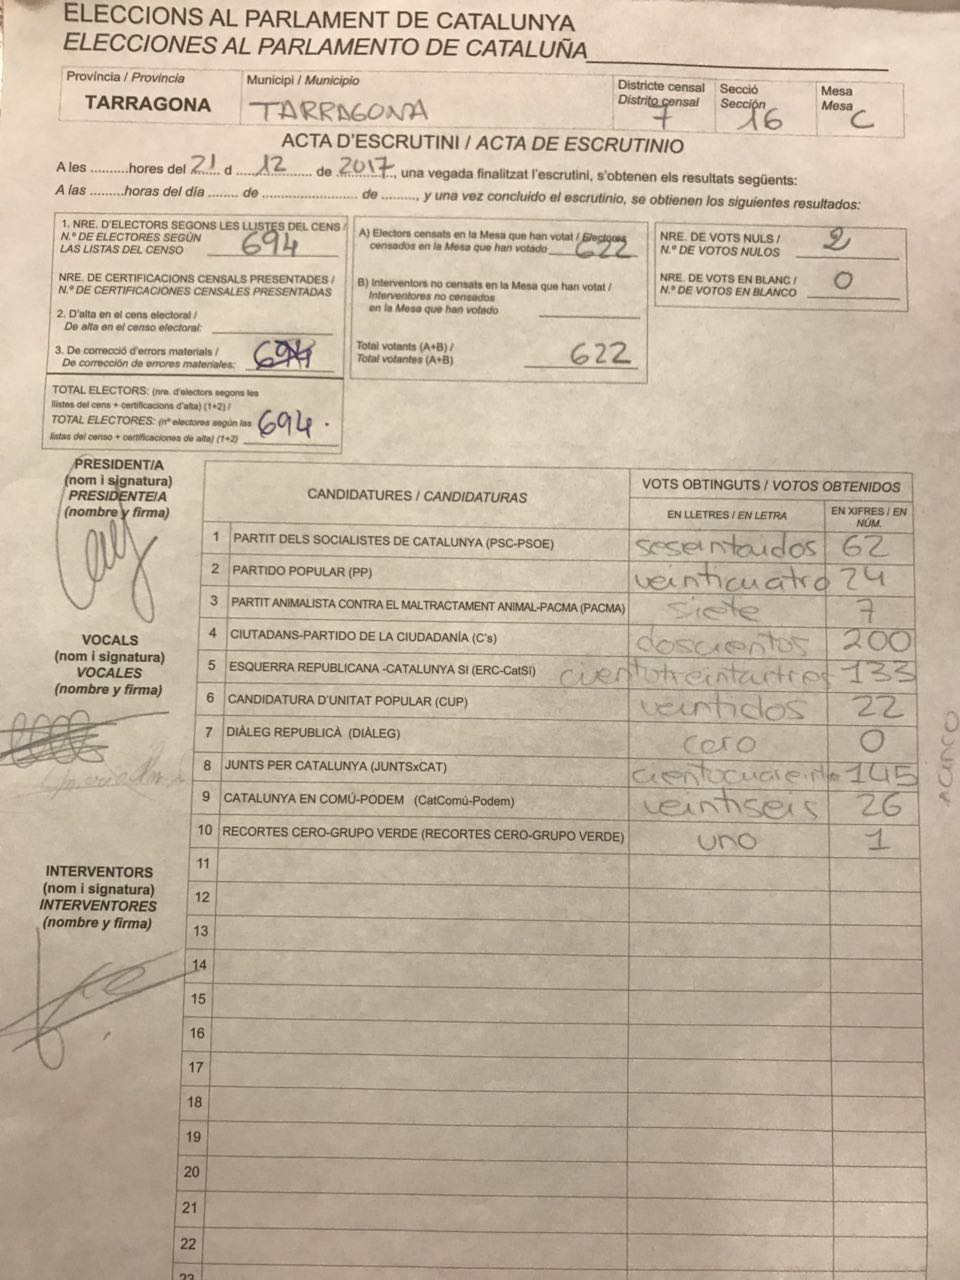 ELECCIONS AL PARLAMENT DE CATALUNYA
ELECCIONES AL PARLAMENTO DE CATALUÑA
Provincia / Provincia
TARRAGONA
Municipi / Municipio
TARRAGONA
Districte censal
Distrito censal
7
Secció
Sección
16
Mesa
Mesa
C
ACTA D'ESCRUTINI / ACTA DE ESCRUTINIO
A les .........hores del 21 d 12 de 2017, una vegada finalitzat l'escrutini, s'obtenen els resultats següents:
A las .........horas del día ........ de ......................... de ........., y una vez concluido el escrutinio, se obtienen los siguientes resultados:
1. NRE. D'ELECTORS SEGONS LES LLISTES DEL CENS /
N.º DE ELECTORES SEGÚN
LAS LISTAS DEL CENSO 694
NRE. DE CERTIFICACIONS CENSALS PRESENTADES /
N.º DE CERTIFICACIONES CENSALES PRESENTADAS
2. D'alta en el cens electoral /
De alta en el censo electoral:
3. De correcció d'errors materials /
De corrección de errores materiales: 694
TOTAL ELECTORS: (nre. d'electors segons les
llistes del cens + certificacions d'alta) (1+2) /
TOTAL ELECTORES: (nº electores según las
listas del censo + certificaciones de alta) (1+2) 694
A) Electors censats en la Mesa que han votat / Electores
censados en la Mesa que han votado 622
B) Interventors no censats en la Mesa que han votat /
Interventores no censados
en la Mesa que han votado
Total votants (A+B) /
Total votantes (A+B) 622
NRE. DE VOTS NULS /
N.º DE VOTOS NULOS 2
NRE. DE VOTS EN BLANC /
N.º DE VOTOS EN BLANCO 0
PRESIDENT/A
(nom i signatura)
PRESIDENTE/A
(nombre y firma)
VOCALS
(nom i signatura)
VOCALES
(nombre y firma)
INTERVENTORS
(nom i signatura)
INTERVENTORES
(nombre y firma)
CANDIDATURES / CANDIDATURAS
VOTS OBTINGUTS / VOTOS OBTENIDOS
EN LLETRES / EN LETRA
EN XIFRES / EN NÚM.
1 PARTIT DELS SOCIALISTES DE CATALUNYA (PSC-PSOE) sesentaidos 62
2 PARTIDO POPULAR (PP) veinticuatro 24
3 PARTIT ANIMALISTA CONTRA EL MALTRACTAMENT ANIMAL-PACMA (PACMA) siete 7
4 CIUTADANS-PARTIDO DE LA CIUDADANÍA (C's) doscientos 200
5 ESQUERRA REPUBLICANA -CATALUNYA SI (ERC-CatSí) cientotreintaitres 133
6 CANDIDATURA D'UNITAT POPULAR (CUP) veintidos 22
7 DIÀLEG REPUBLICÀ (DIÀLEG) cero 0
8 JUNTS PER CATALUNYA (JUNTSxCAT) cientocuarenta 145
9 CATALUNYA EN COMÚ-PODEM (CatComú-Podem) veintiseis 26
10 RECORTES CERO-GRUPO VERDE (RECORTES CERO-GRUPO VERDE) uno 1
11
12
13
14
15
16
17
18
19
20
21
22
23
CINCO